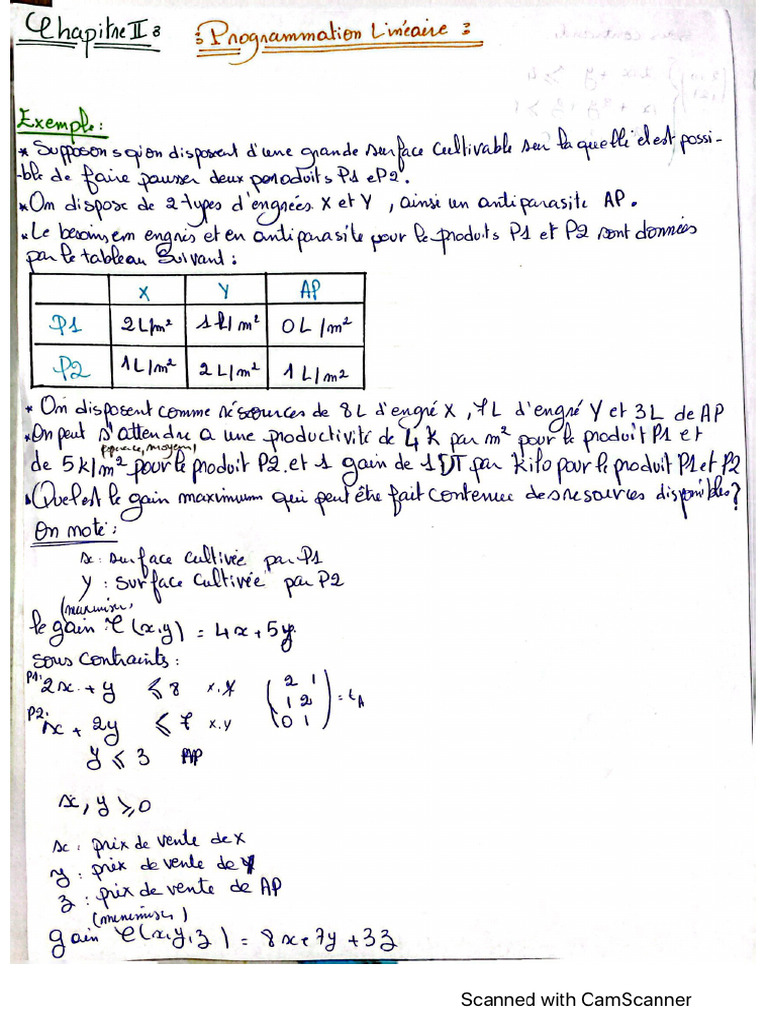 Chapitre II : : Programmation Linéaire :
Exemple :
* Supposons qu'on disposent d'une grande surface cultivable sur laquelle il est possi-
-ble de faire pousser deux poroduits P1 et P2.
* On dispose de 2 types d'engrées X et Y, ainsi un antiparasite AP.
* Le besoins em engrés et en antiparasite pour le produits P1 et P2 sont données
par le tableau Suivant :
X Y AP
P1 2L/m² 1L/m² 0L/m²
P2 1L/m² 2L/m² 1L/m²
* On disposent comme résources de 8L d'engré X, 7L d'engré Y et 3L de AP
* On peut s'attendre a une productivité de 4k par m² pour le produit P1 et
de 5k/m² pour le produit P2. et 1 gain de 1DT par kilo pour le produit P1 et P2
* Quel est le gain maximum qui peut être fait contenue des resources disponibles ?
On note :
x : surface cultivée par P1
y : surface cultivée par P2
(maximiser)
le gain : C(x,y) = 4x+5y
sous contraints :
P1: 2x + y ≤ 8 x.y ( 2 1
P2: x + 2y ≤ 7 x.y 1 2
0 1 ) = tA
y ≤ 3 AP
x, y ≥ 0
x : prix de vente de X
y : prix de vente de Y
z : prix de vente de AP
(menimiser)
gain C(x,y,z) = 8x+7y+3z
Scanned with CamScanner